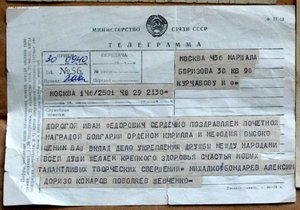 МИНИСТЕРСТВО СВЯЗИ СССР
ТЕЛЕГРАММА
ПЕРЕДАЧА
№ 56
МОСКВА Ч36 МАРШАЛА
БОРИЗОВА 30 КВ 98
КУРЧАВОВУ И
МОСКВА 146/2501 ЧВ 29 2130=
ДОРОГОЙ ИВАН ФЕДОРОВИЧ СЕРДЕЧНО ПОЗДРАВЛЯЕМ ПОЧЕТНОЙ
НАГРАДОЙ БОЛГАРИИ ОРДЕНОМ КИРИЛЛА И МЕФОДИЯ ВЫСОКО
ЦЕНИМ ВАШ ВКЛАД ДЕЛО УКРЕПЛЕНИЯ ДРУЖБЫ МЕЖДУ НАРОДАМИ
ВСЕЙ ДУШИ ЖЕЛАЕМ КРЕПКОГО ЗДОРОВЬЯ СЧАСТЬЯ НОВЫХ
ТАЛАНТЛИВЫХ ТВОРЧЕСКИХ СВЕРШЕНИЙ= МИХАЛКОВ БОНДАРЕВ АЛЕКСИН
ДОРИЗО КОМАРОВ ПОВОЛЯЕВ ШЕВЧЕНКО-